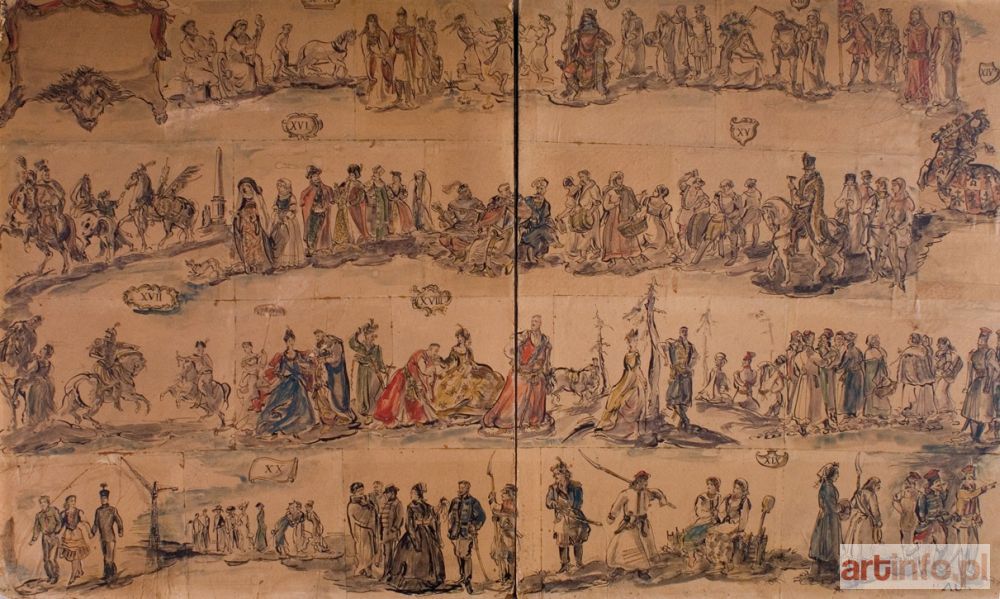 XIV
XVI
XV
XVII
XVIII
XX
XIX
artinfo.pl